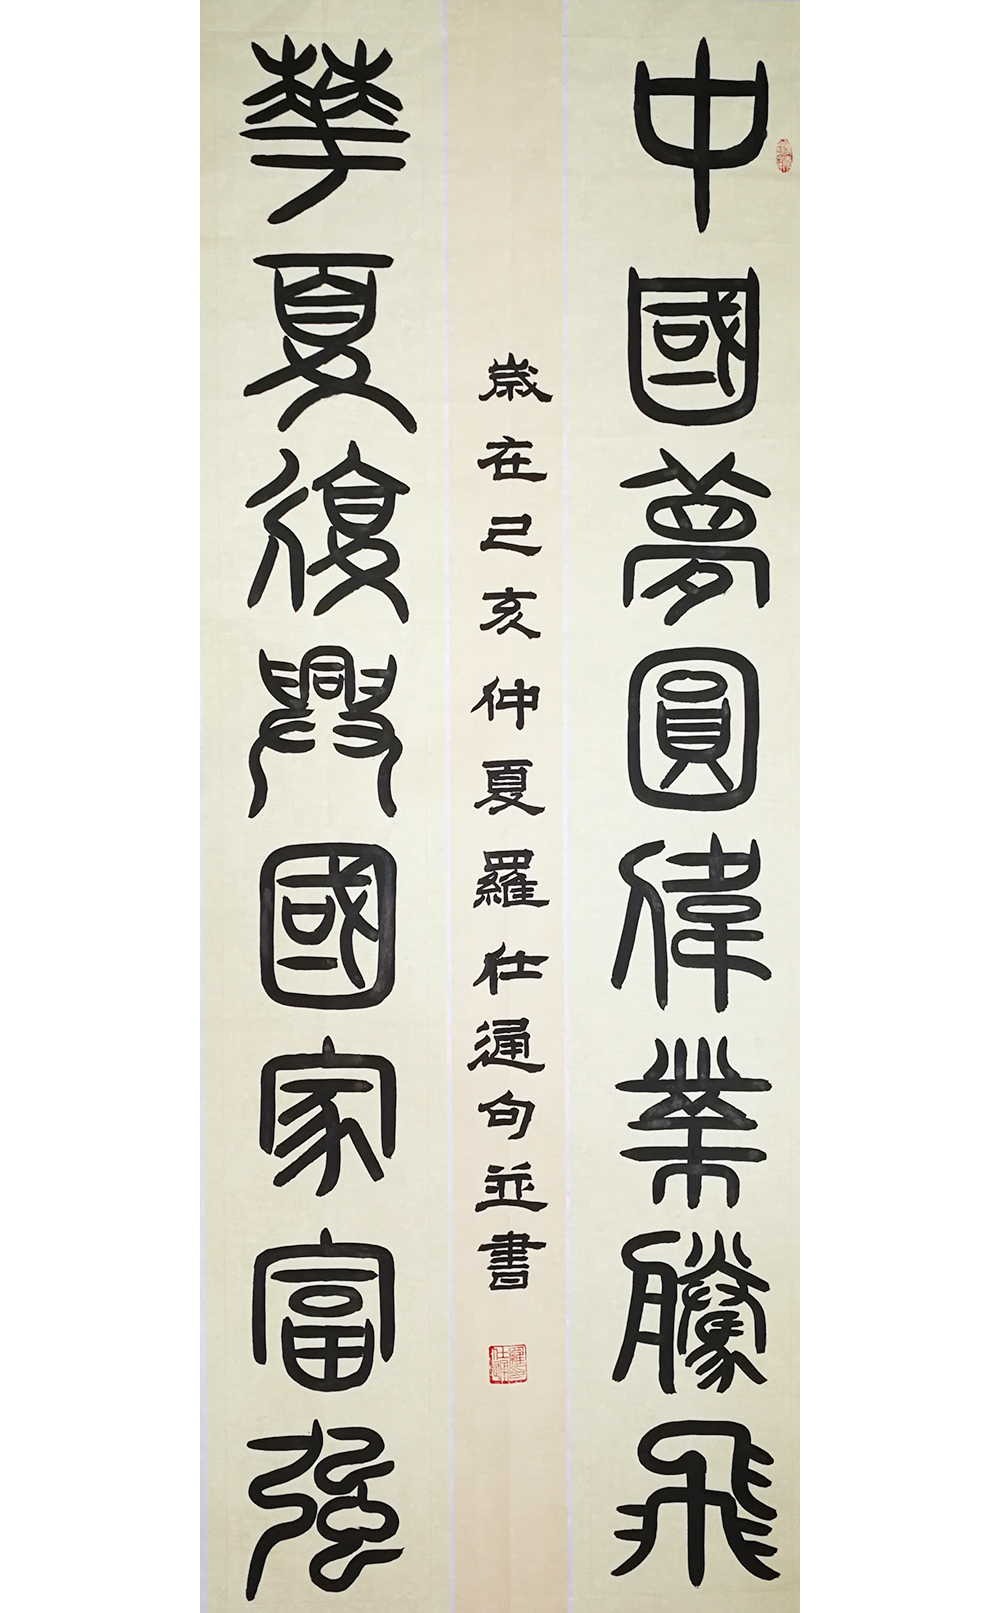 中國夢圓偉業騰飛
華夏復興國家富強
歲在己亥仲夏羅仕通句並書